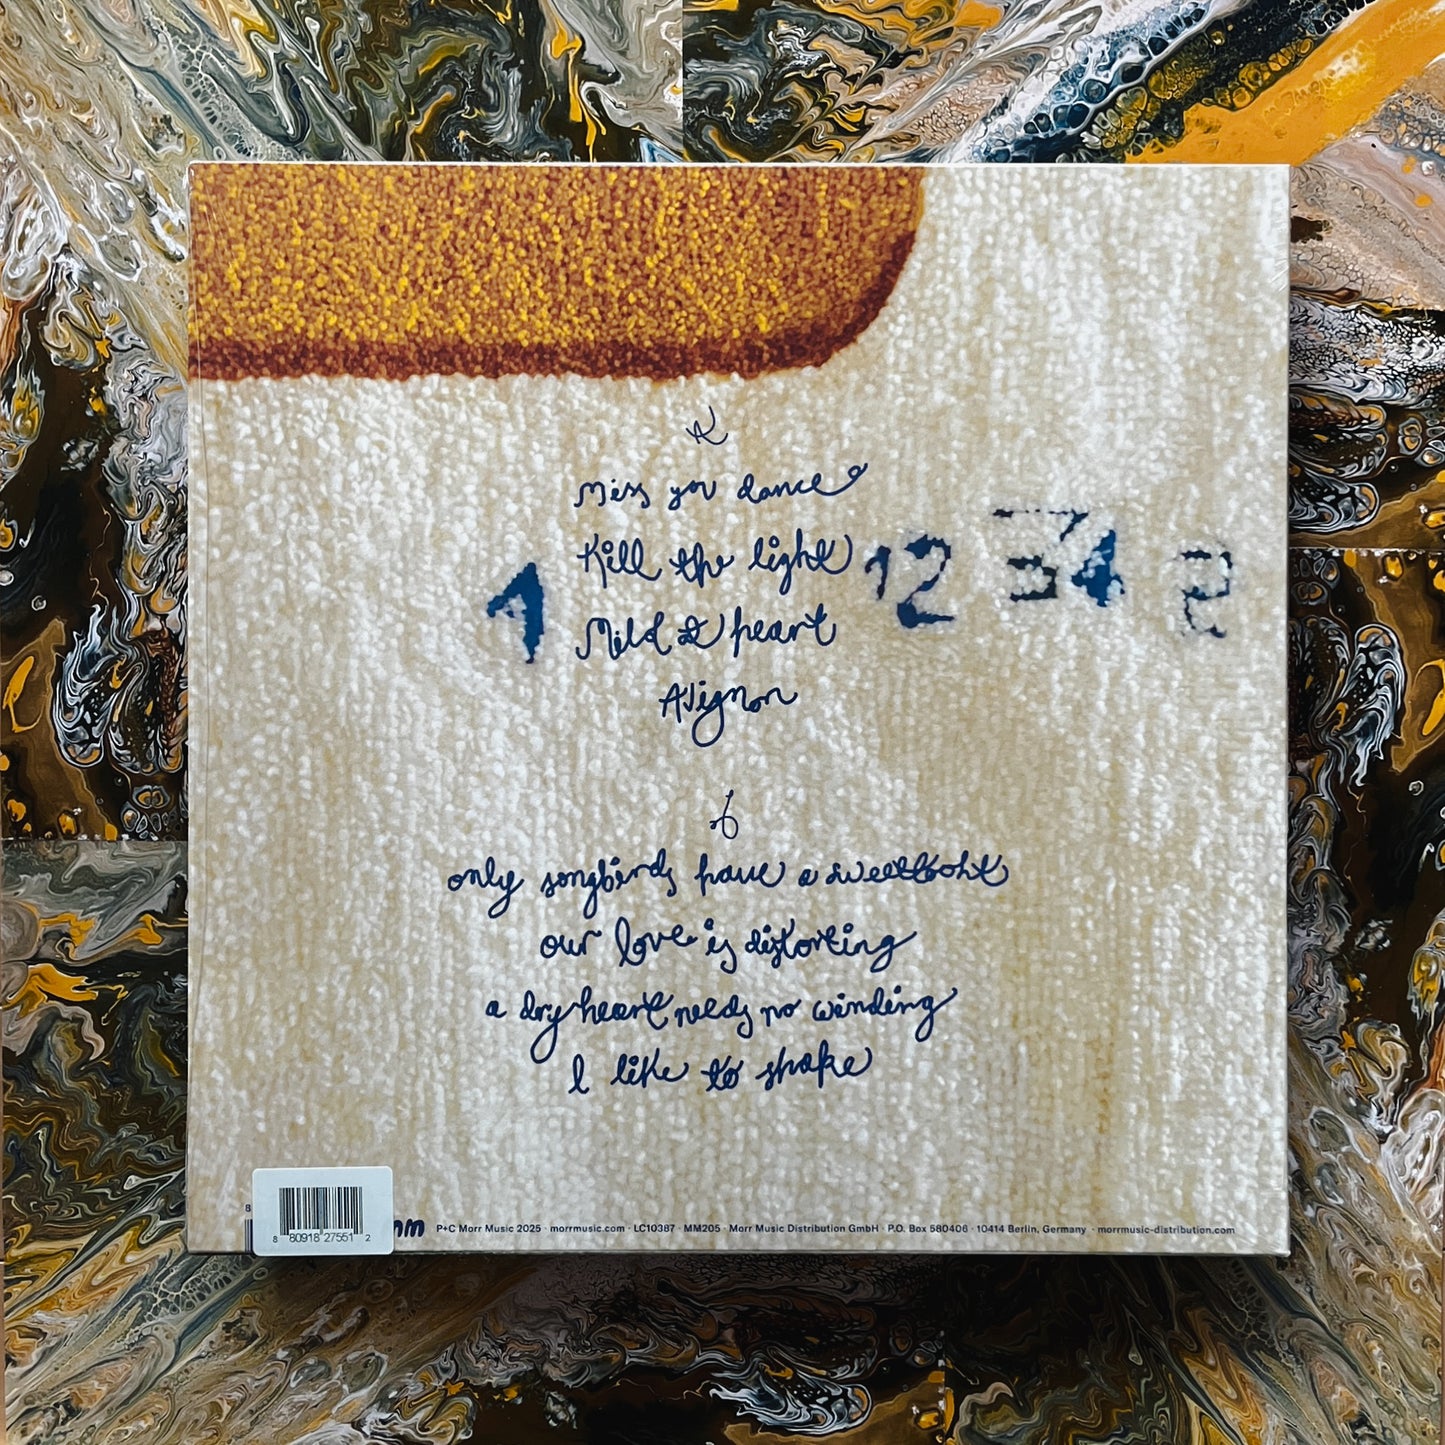 A
Miss you dance
Kill the light
1
12
34
2
Mild at heart
Avignon
b
only songbirds have a sweettooth
our love is distorting
a dry heart needs no winding
I like to shake
8
mm P+C Morr Music 2025 · morrmusic.com · LC10387 · MM205 · Morr Music Distribution GmbH · P.O. Box 580406 · 10414 Berlin, Germany · morrmusic-distribution.com
8 80918 27551 2